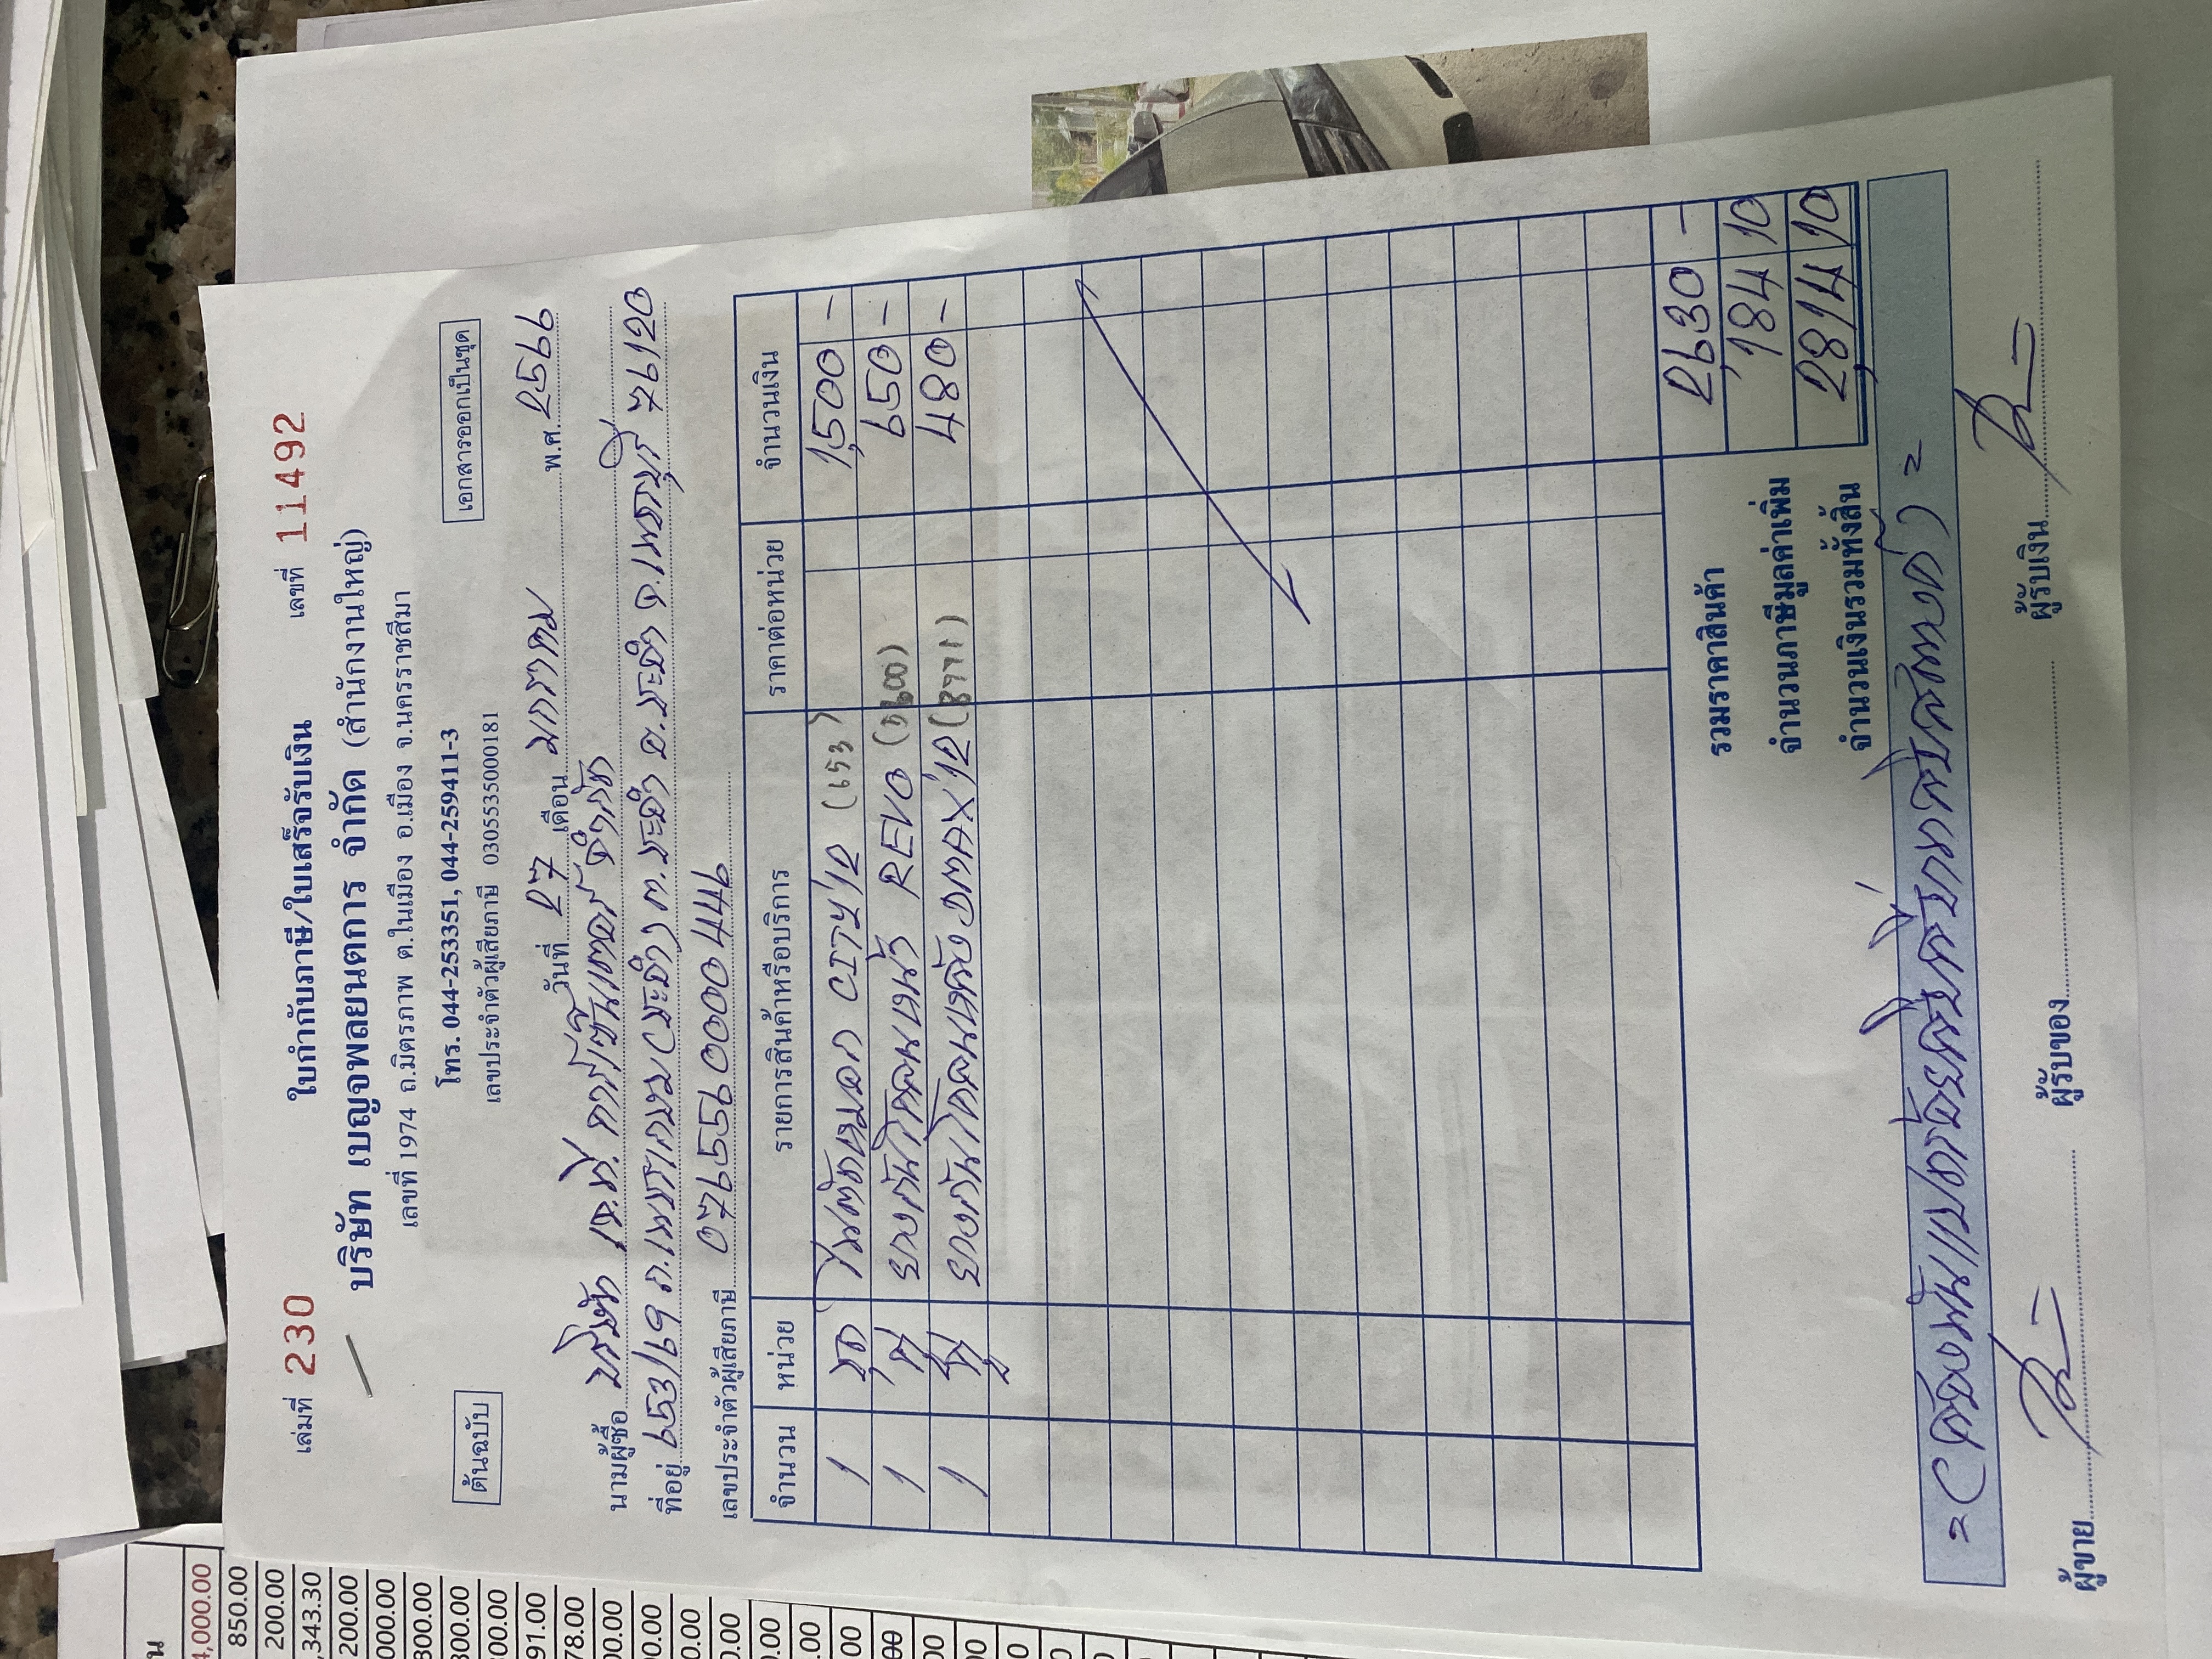 เล่มที่ 230 ใบกำกับภาษี/ใบเสร็จรับเงิน เลขที่ 11492
บริษัท เบญจพลยนตการ จำกัด (สำนักงานใหญ่)
เลขที่ 1974 ถ.มิตรภาพ ต.ในเมือง อ.เมือง จ.นครราชสีมา
ต้นฉบับ โทร. 044-253351, 044-259411-3 เอกสารออกเป็นชุด
เลขประจำตัวผู้เสียภาษี 0305535000181
วันที่ 27 เดือน มกราคม พ.ศ. 2566
นามผู้ซื้อ บริษัท เจ.ที. คาร์เซ็นเตอร์ จำกัด
ที่อยู่ 653/69 ถ.เพชรเกษม ต.ชะอำ อ.ชะอำ จ.เพชรบุรี 76120
เลขประจำตัวผู้เสียภาษี 0765560000446
จำนวน หน่วย รายการสินค้าหรือบริการ ราคาต่อหน่วย จำนวนเงิน
1 ชุด ไฟตัดหมอก CITY'12 (153) 1,500 -
1 คู่ ยางกันโคลนหน้า REVO (1600) 650 -
1 คู่ ยางกันโคลนหลัง DMAX'12 (8771) 480 -
รวมราคาสินค้า 2,630 -
จำนวนภาษีมูลค่าเพิ่ม 184 10
จำนวนเงินรวมทั้งสิ้น 2,814 10
= (สองพันแปดร้อยสิบสี่บาทสิบสตางค์) =
ผู้ขาย ผู้รับของ ผู้รับเงิน
850.00
200.00
,343.30
200.00